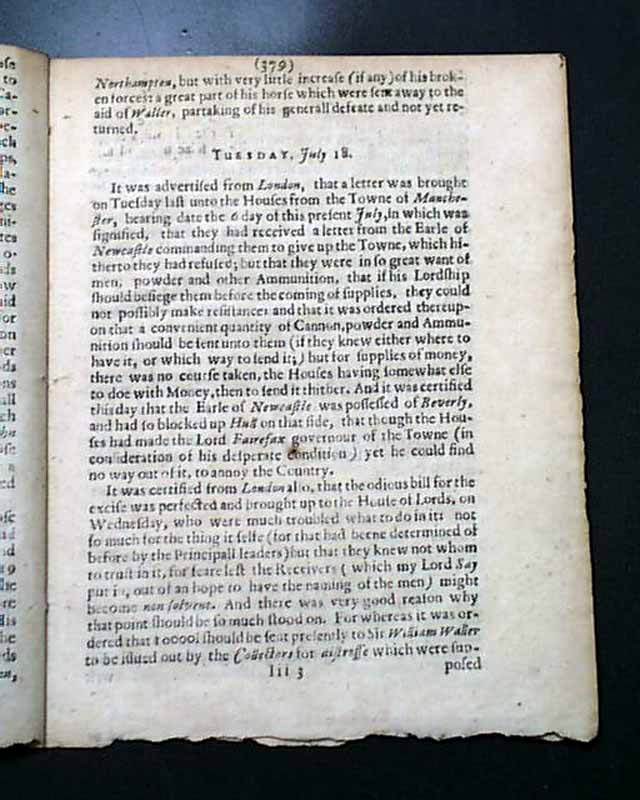 (379)
Northampton, but with very little increase (if any) of his brok-
en forces: a great part of his horse which were sent away to the
aid of Waller, partaking of his generall defeate and not yet re-
turned.
TUESDAY. July 18.
It was advertiſed from London, that a letter was brought
on Tueſday laſt unto the Houſes from the Towne of Manche-
ſter, bearing date the 6 day of this preſent July, in which was
ſignified, that they had received a letter from the Earle of
Newcaſtle commanding them to give up the Towne, which hi-
therto they had refuſed; but that they were in ſo great want of
men, powder and other Ammunition, that if his Lordſhip
ſhould beſiege them before the coming of ſupplies, they could
not poſſibly make reſiſtance: and that it was ordered thereup-
on that a convenient quantity of Cannon, powder and Ammu-
nition ſhould be ſent unto them (if they knew either where to
have it, or which way to ſend it;) but for ſupplies of money,
there was no courſe taken, the Houſes having ſomewhat elſe
to doe with Money, then to ſend it thither. And it was certified
this day that the Earle of Newcaſtle was poſſeſſed of Beverly,
and had ſo blocked up Hull on that ſide, that though the Hou-
ſes had made the Lord Fairefax governour of the Towne (in
conſideration of his deſperate condition) yet he could find
no way out of it, to annoy the Country.
It was certified from London alſo, that the odious bill for the
exciſe was perfected and brought up to the Houſe of Lords, on
Wedneſday, who were much troubled what to do in it: not
ſo much for the thing it ſelfe (for that had beene determined of
before by the Principall leaders) but that they knew not whom
to truſt in it, for feare leſt the Receivers (which my Lord Say
put in, out of an hope to have the naming of the men) might
become non ſolvent. And there was very good reaſon why
that point ſhould be ſo much ſtood on. For whereas it was or-
dered that 10000l ſhould be ſent preſently to Sir William Waller
to be iſſued out by the Collectors for diſtreſſe which were ſup-
Iii 3 poſed